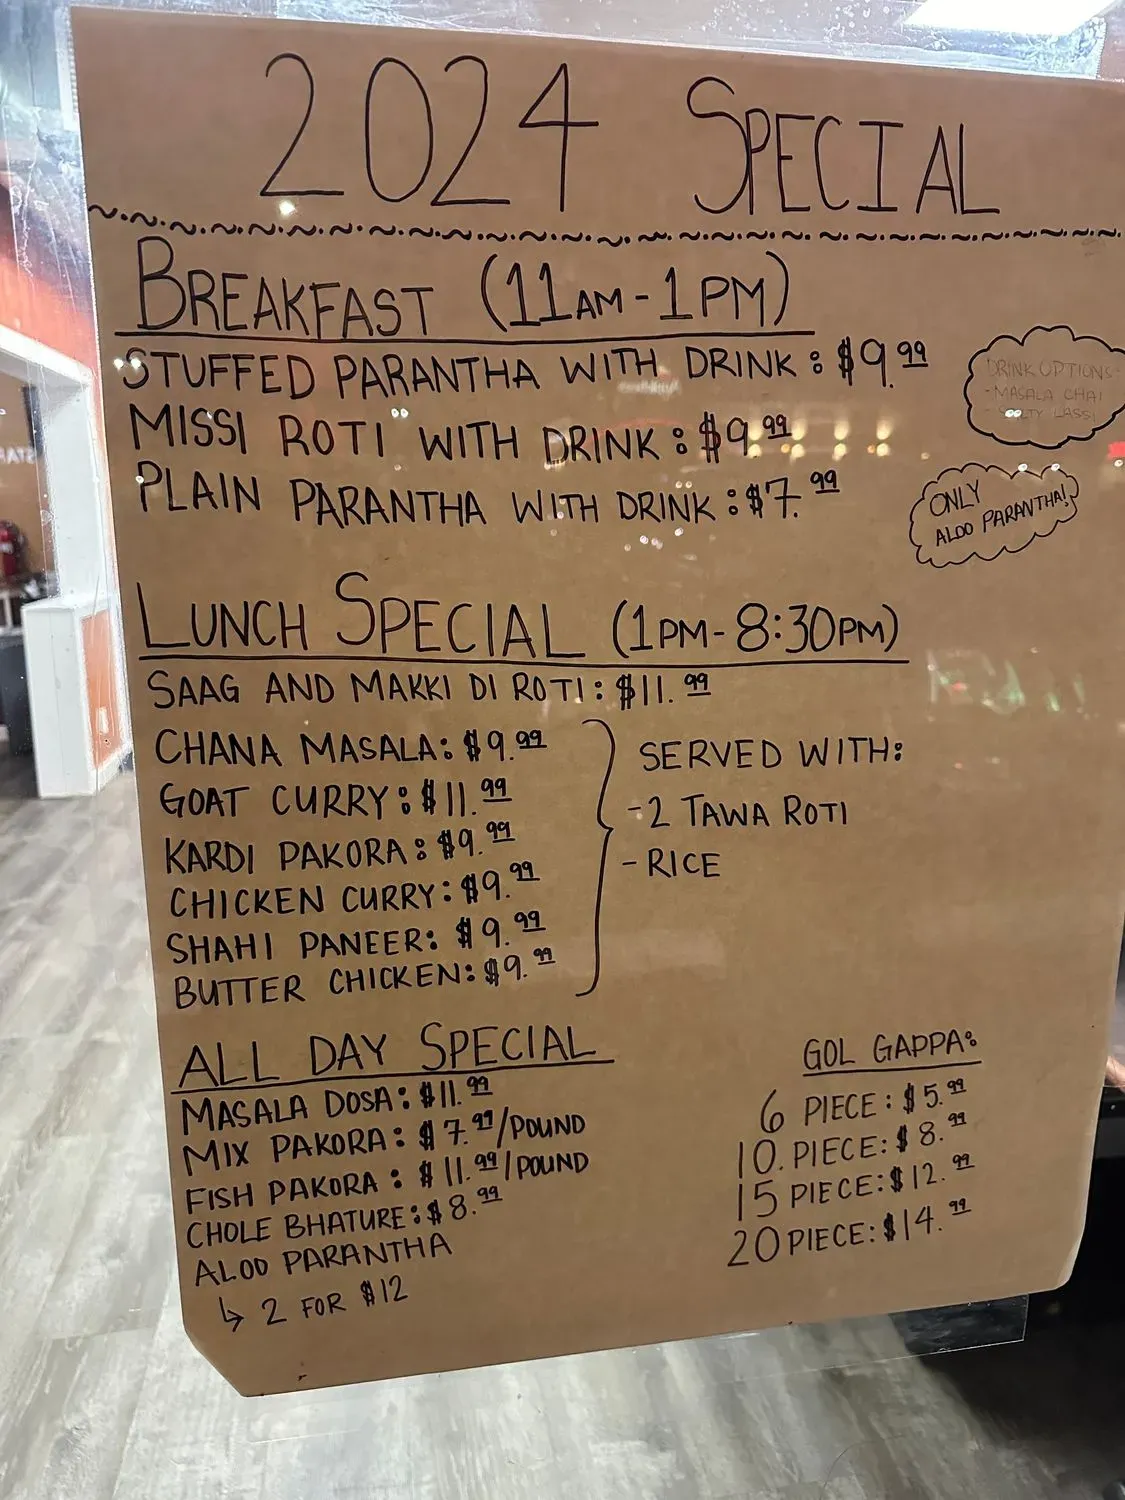 2024 SPECIAL
BREAKFAST (11AM-1PM)
STUFFED PARANTHA WITH DRINK: $9.99
MISSI ROTI WITH DRINK: $9.99
PLAIN PARANTHA WITH DRINK: $7.99
DRINK OPTIONS
-MASALA CHAI
-SALTY LASSI
ONLY
ALOO PARANTHA!
LUNCH SPECIAL (1PM-8:30PM)
SAAG AND MAKKI DI ROTI: $11.99
CHANA MASALA: $9.99
GOAT CURRY: $11.99
KARDI PAKORA: $9.99
CHICKEN CURRY: $9.99
SHAHI PANEER: $9.99
BUTTER CHICKEN: $9.99
SERVED WITH:
-2 TAWA ROTI
-RICE
ALL DAY SPECIAL
MASALA DOSA: $11.99
MIX PAKORA: $7.99/POUND
FISH PAKORA: $11.99/POUND
CHOLE BHATURE: $8.99
ALOO PARANTHA
↳ 2 FOR $12
GOL GAPPA:
6 PIECE: $5.99
10. PIECE: $8.99
15 PIECE: $12.99
20 PIECE: $14.99